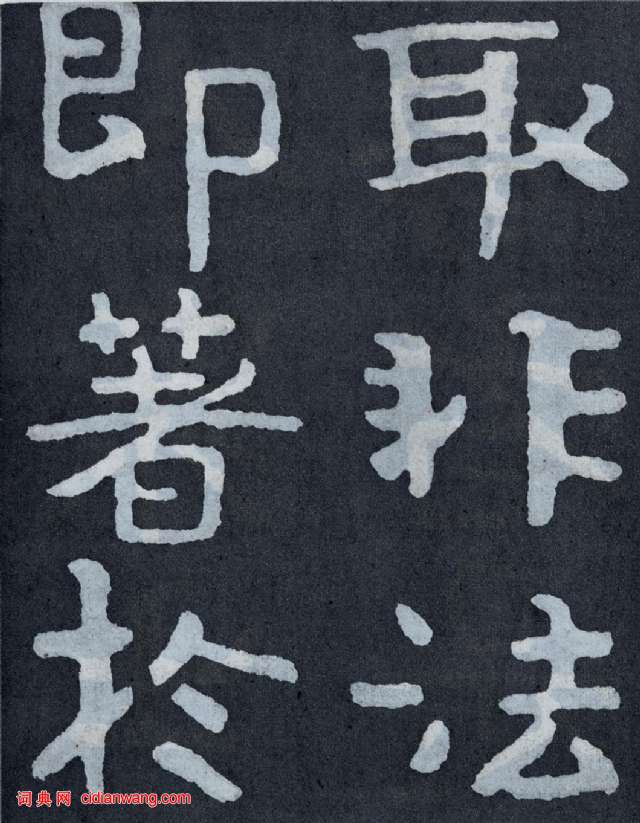 取非法
即著於
词典网 cidianwang.com